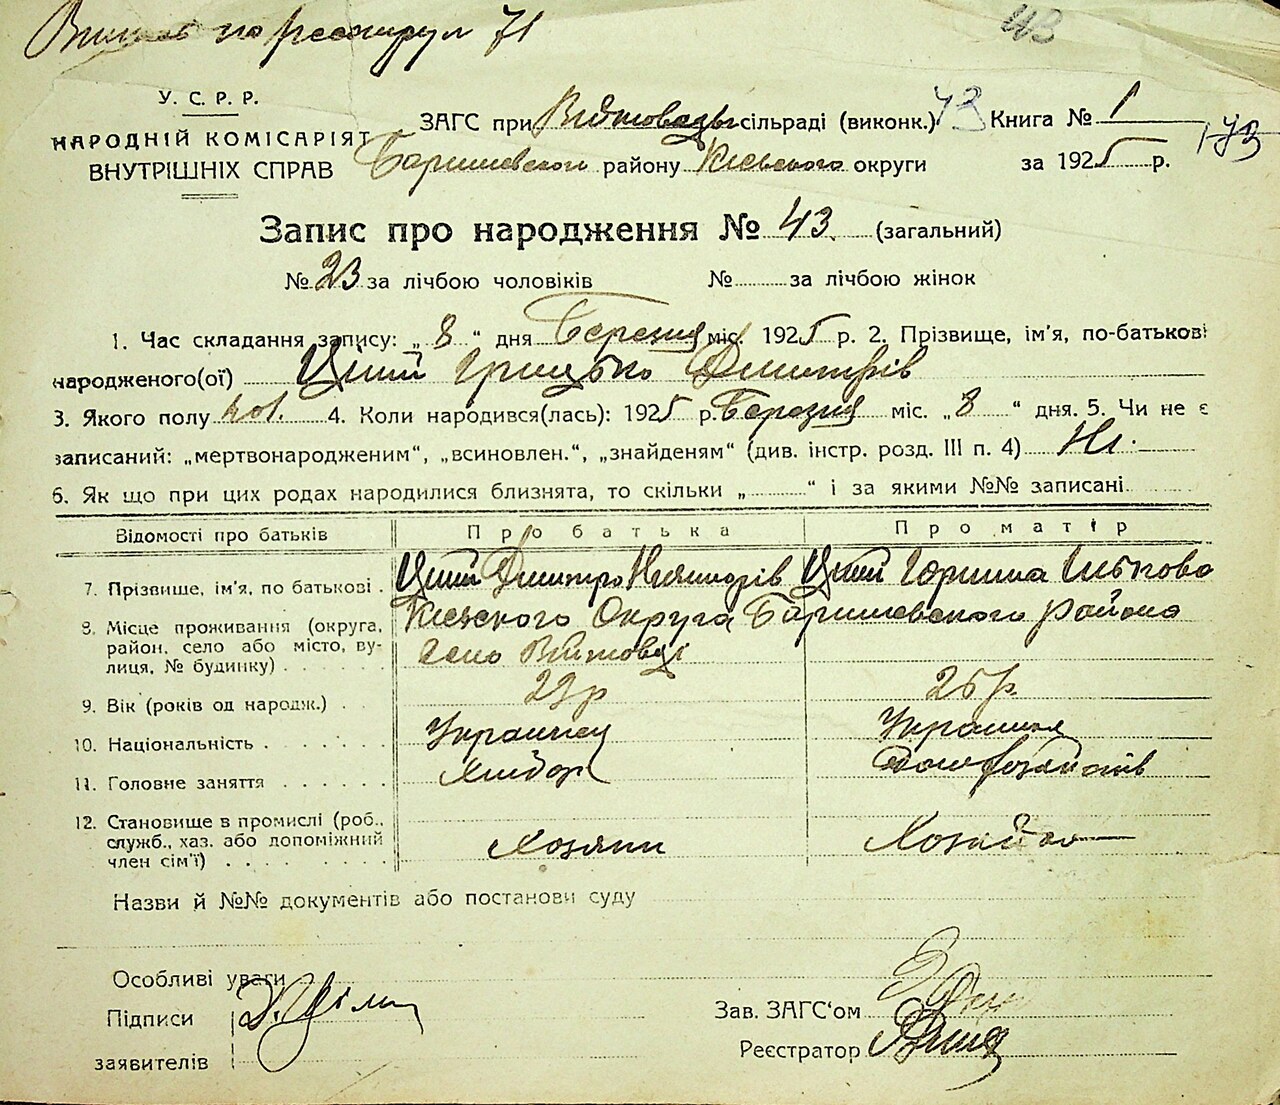 по реєстру 71
43
У. С. Р. Р.
НАРОДНІЙ КОМІСАРІЯТ
ВНУТРІШНІХ СПРАВ
ЗАГС при Війтовцы сільраді (виконк.) 43 Книга № 1
173
Баришевского району Киевського округи за 1925 р.
Запис про народження № 43 (загальний)
№ 23 за лічбою чоловіків № за лічбою жінок
1. Час складання запису: „ 8 “ дня Березня міс. 1925 р. 2. Прізвище, ім'я, по-батькові
народженого(ої) Грицько Дмитрів
3. Якого полу чол. 4. Коли народився(лась): 1925 р. Березня міс. „ 8 “ дня. 5. Чи не є
записаний: „мертвонародженим“, „всиновлен.“, „знайденям“ (див. інстр. розд. III п. 4) Ні.
6. Як що при цих родах народилися близнята, то скільки „ “ і за якими №№ записані
Відомості про батьків Про батька Про матір
7. Прізвище, ім'я, по батькові . Дмитро
8. Місце проживання (округа, Округа Баришевского района
район, село або місто, ву- село Війтовці
лиця, № будинку)
9. Вік (років од народж.) 29 р 25 р.
10. Національність
11. Головне заняття
12. Становище в промислі (роб.,
служб., хаз. або допоміжний Хозяин
член сім'ї)
Назви й №№ документів або постанови суду
Особливі уваги
Підписи
заявителів
Зав. ЗАГС'ом
Реєстратор